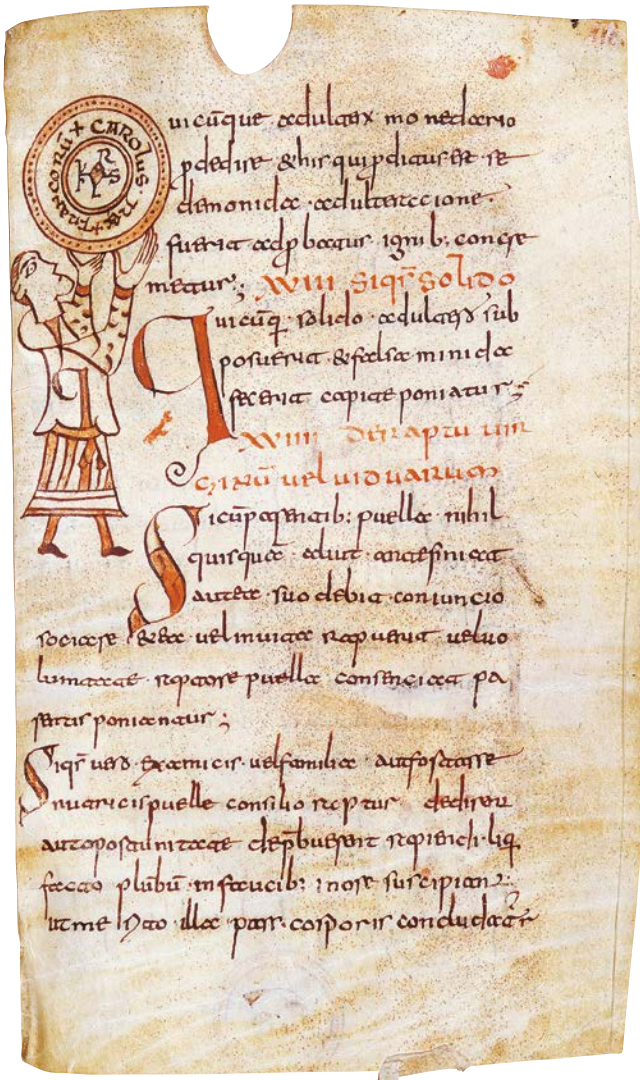 + CAROLUS · REX FRANCORŨ
KRS
uicũque adulter monedario
p dedire & his qui p dictus est se
demonida · adulteraccione ·
fuerit adp boatus · ignib; concre
metur; XVIII Siqs̃ Solido
Quicũq; solido · adulterũ sub
posuerit & falsa minida
fecerit capite poniatur;
XVIIII De raptu uir
ginũ uel uiduarum
Si cũ parentib: puella · nihil
quisquã
suo debit · coniuncio
sociare uel inuita rapuerit uel uo
luntate · raptare puella consenciat pa
poniantur;
Siqs̃ uero · ex amicis · uel familia aut fortasse
nutricis puelle consilio raptus dedirent
aut oportunitate depbuerit rapiendi · liq
facto plũbũ · in faucib: inore suscipiant;
ut me illa pars · corporis concludatur